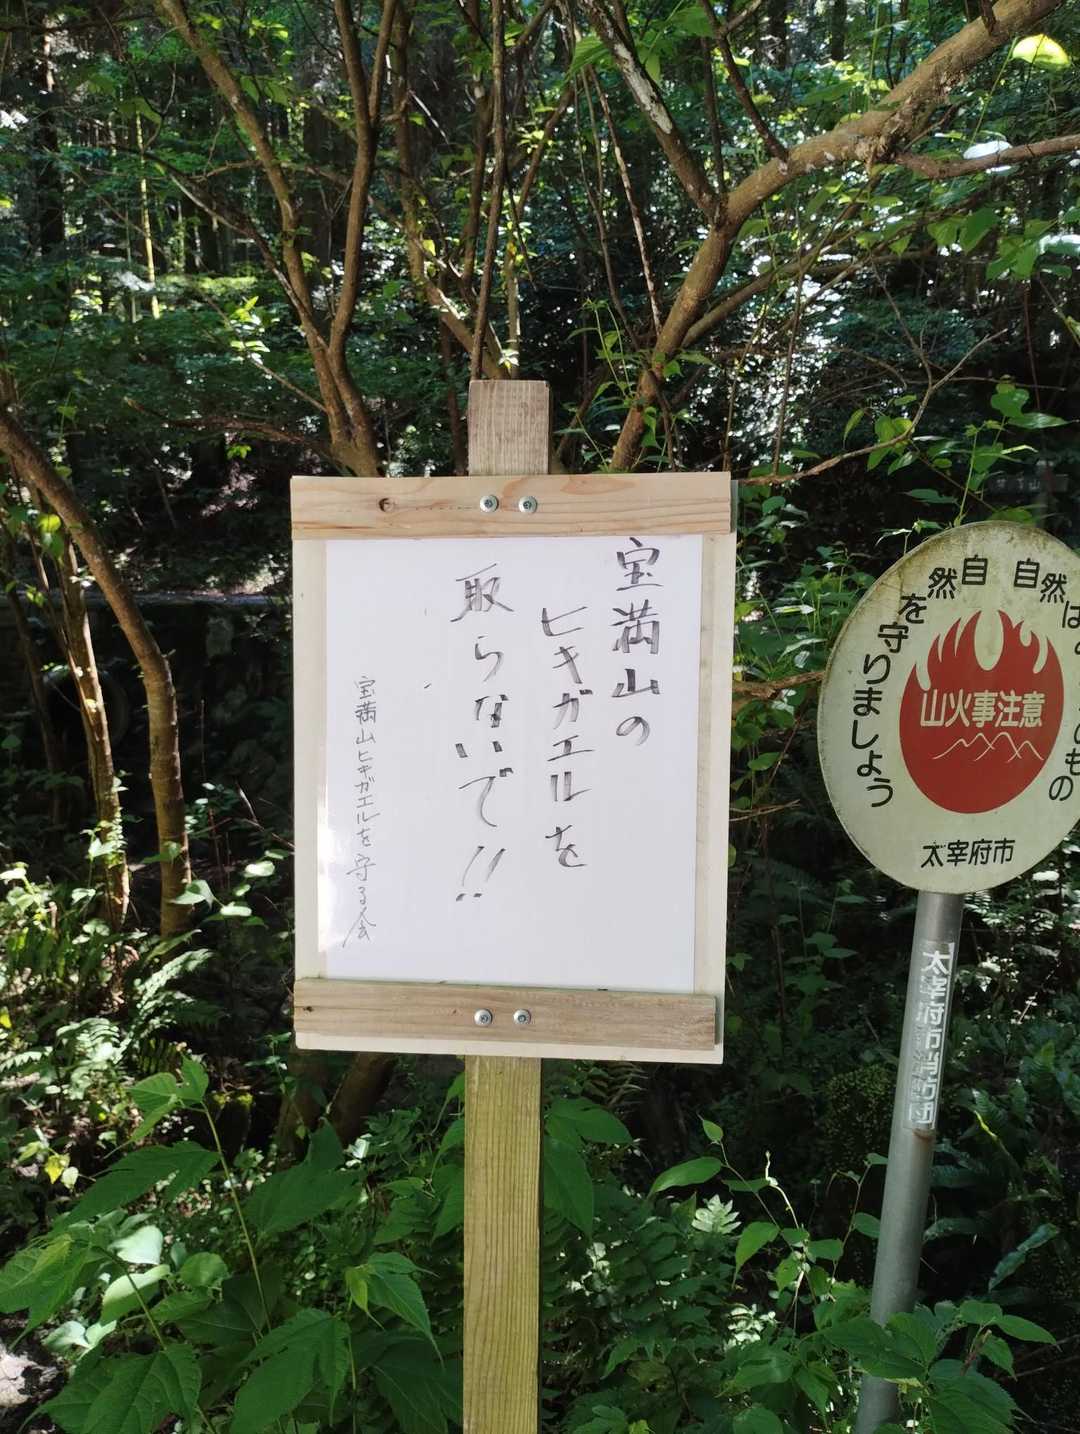 宝満山の
ヒキガエルを
取らないで!!
宝満山ヒキガエルを守る会
自然は
もの
自然
を守りましょう
山火事注意
太宰府市
太宰府市消防団